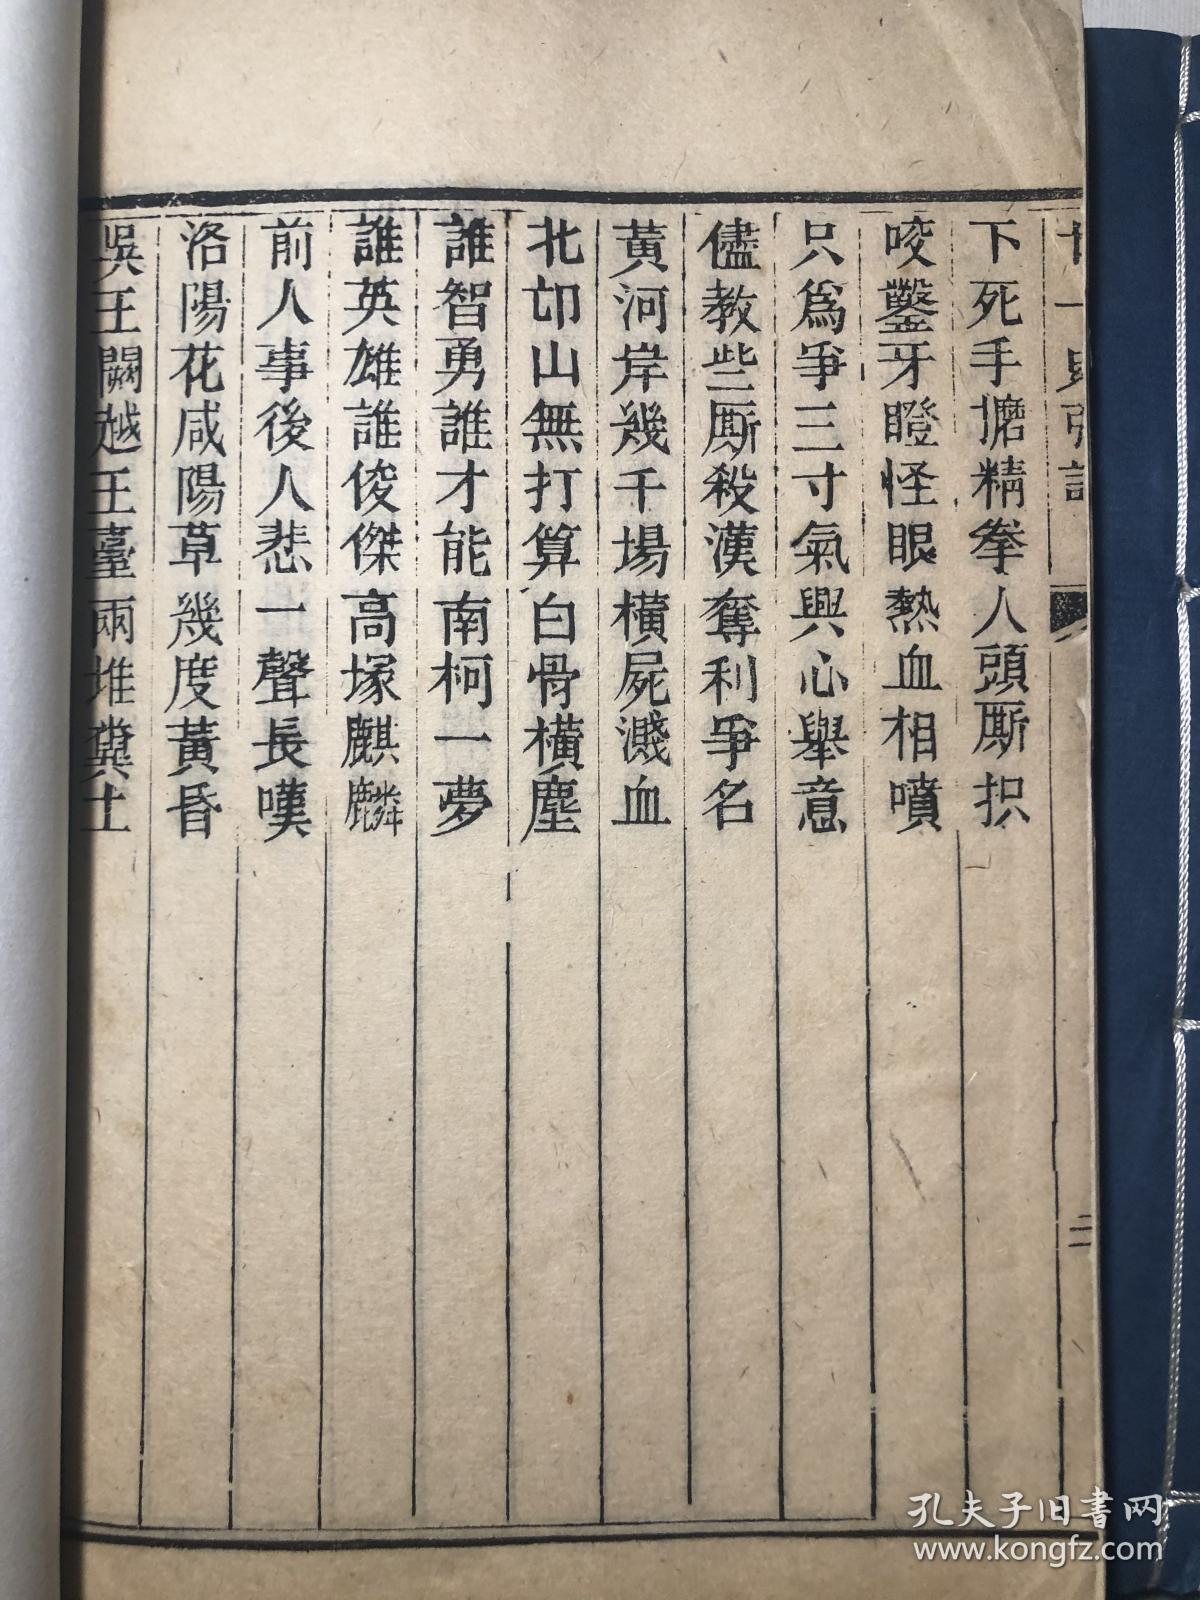 十一史彈詞
二
下死手搪精拳人頭厮抧
咬鑿牙瞪怪眼熱血相噴
只爲爭三寸氣與心舉意
儘教些厮殺漢奪利爭名
黃河岸幾千場橫屍濺血
北邙山無打算白骨橫塵
誰智勇誰才能南柯一夢
誰英雄誰俊傑高塚麒麟
前人事後人悲一聲長嘆
洛陽花咸陽草幾度黃昏
吳王闕越王臺兩堆糞土
孔夫子旧書网
www.kongfz.com